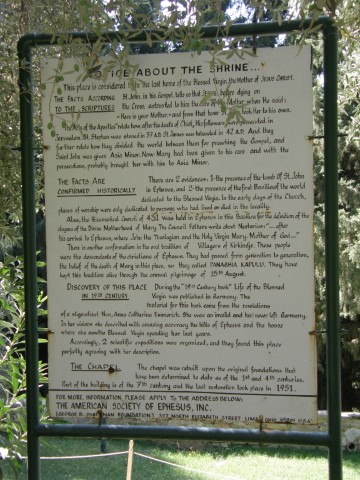 ICE ABOUT THE SHRINE...
This place is considered to be the last home of the Blessed Virgin, the Mother of Jesus Christ.
THE FACTS ACCORDING
TO THE SCRIPTURES
St. John, in his Gospel, tells us that Jesus, before dying on
the Cross, entrusted to him the care of His Mother when He said:
«Here is your Mother» and from that hour St. John took Her to his own.
The Acts of the Apostles relate how, after the death of Christ, His followers were persecuted in
Jerusalem. St. Stephen was stoned in 37 A.D. St. James was beheaded in 42 A.D. And they
further relate how they divided the world between them for preaching the Gospel, and
Saint John was given Asia Minor. Now Mary had been given to his care and with the
persecutions, probably brought her with him to Asia Minor.
THE FACTS ARE
CONFIRMED HISTORICALLY
There are 2 evidences: 1-the presence of the tomb of St. John
in Ephesus, and 2-the presence of the first Basilica of the world
dedicated to the Blessed Virgin. In the early days of the Church,
places of worship were only dedicated to persons who had lived or died in the locality.
Also, the Ecumenical Council of 431 was held in Ephesus in this Basilica for the definition of the
dogma of the Divine Motherhood of Mary. The Council Fathers wrote about Nestorius: "...after
his arrival to Ephesus, where John the Theologian and the Holy Virgin Mary, Mother of God..."
There is another confirmation in the oral tradition of Villagers of Kirkindje. These people
were the descendants of the christians of Ephesus. They had passed from generation to generation,
the belief of the death of Mary in this place, so they called PANAGHIA KAPULU. They have
kept this tradition alive through the annual pilgrimage of 15th August.
DISCOVERY OF THIS PLACE
IN 19TH CENTURY
During the "19th Century, book" Life of the Blessed
Virgin was published in Germany. The
material for this book came from the revelations
of a stigmatised Nun, Anna Catherina Emmerich. She was an invalid and had never left Germany.
In her visions she described with amazing accuracy the hills of Ephesus and the house
where she saw the Blessed Virgin spending her last years.
Accordingly, 2 scientific expeditions were organized, and they found this place
perfectly agreeing with her description.
THE CHAPEL
The chapel was rebuilt upon the original foundations that
have been determined to date as of the 1st and 4th centuries.
Part of the building is of the 7th century and the last restoration took place in 1951.
FOR MORE INFORMATION, PLEASE APPLY TO THE ADDRESS BELOW:
THE AMERICAN SOCIETY OF EPHESUS, INC.
(GEORGE B. FOUNDATION), NORTH ELIZABETH STREET LIMA, OHIO U.S.A.